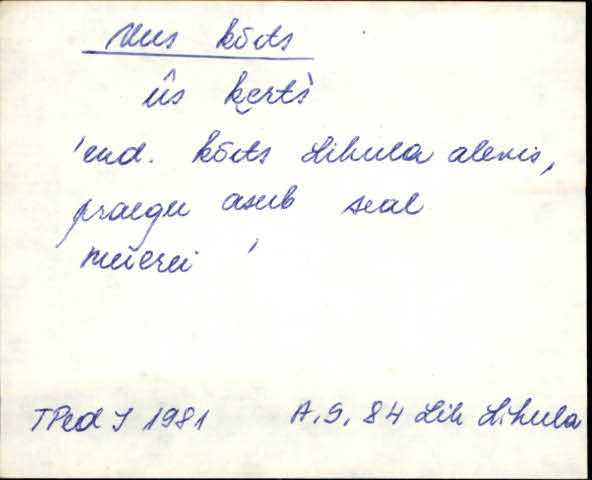 Uus kõrts
ūs kerts̀
'end. kõrts Lihula alevis,
praegu asub seal
meierei '
TPed I 1981 A.S. 84 Lih Lihula